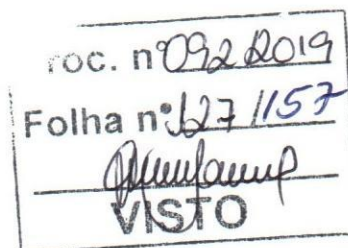 roc. nº 092 2019
Folha nº 127 /157
VISTO